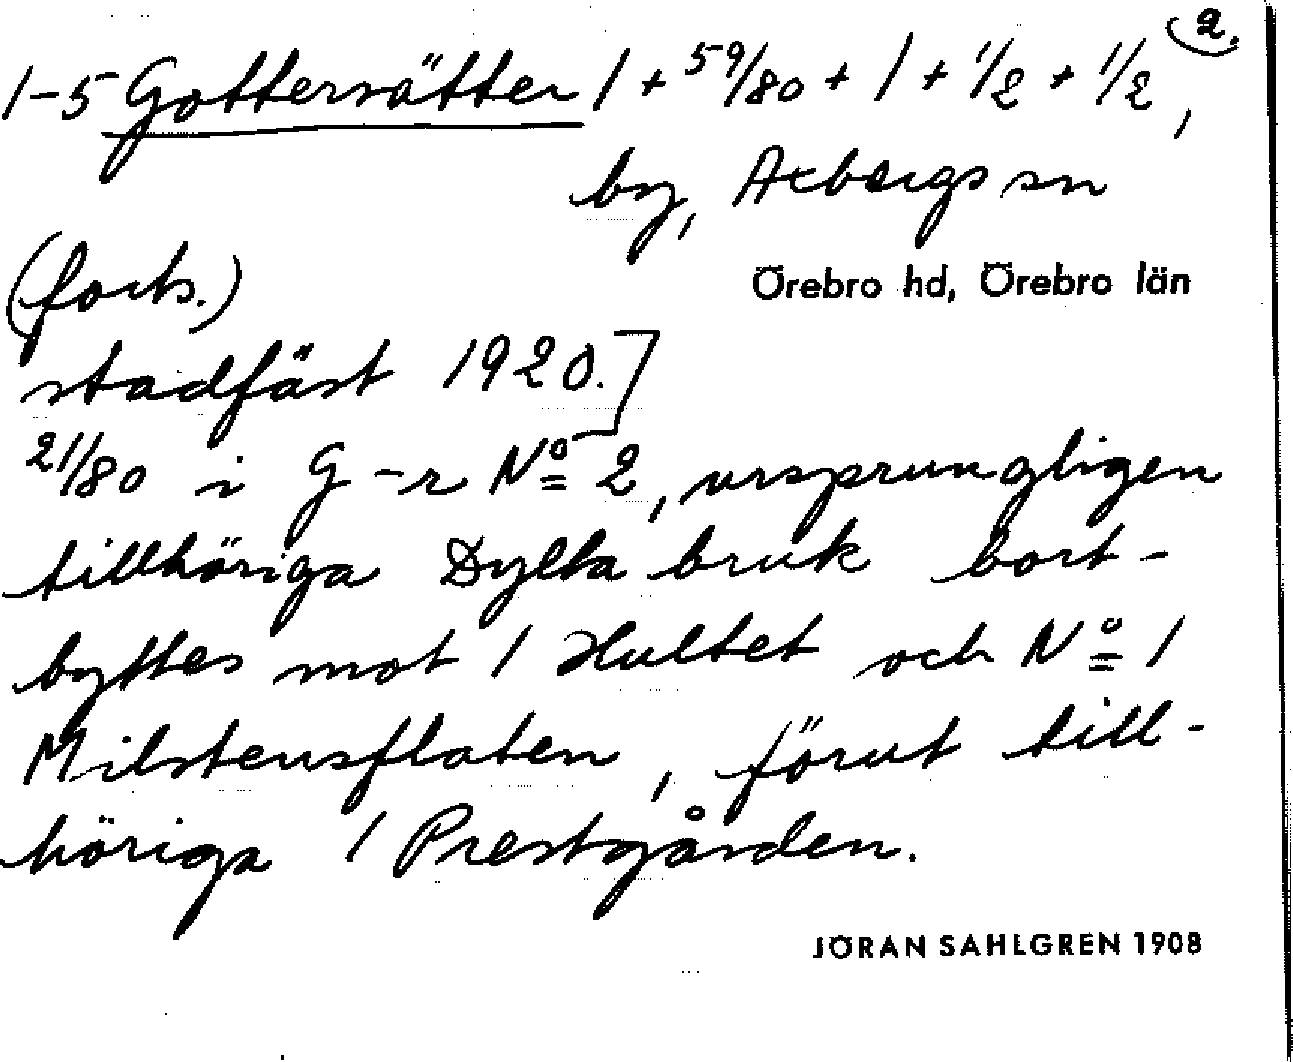 2.
1-5 Gottersätter 1 + 59/80 + 1 + 1/2 + 1/2,
by, Axbergs sn
(forts.)
Örebro hd, Örebro län
stadfäst 1920.]
21/80 i G-r No 2, ursprungligen
tillhöriga Dylta bruk bort-
byttes mot 1 Hultet och No 1
Milstensflaten, förut till-
höriga 1 Prestgården.
JÖRAN SAHLGREN 1908